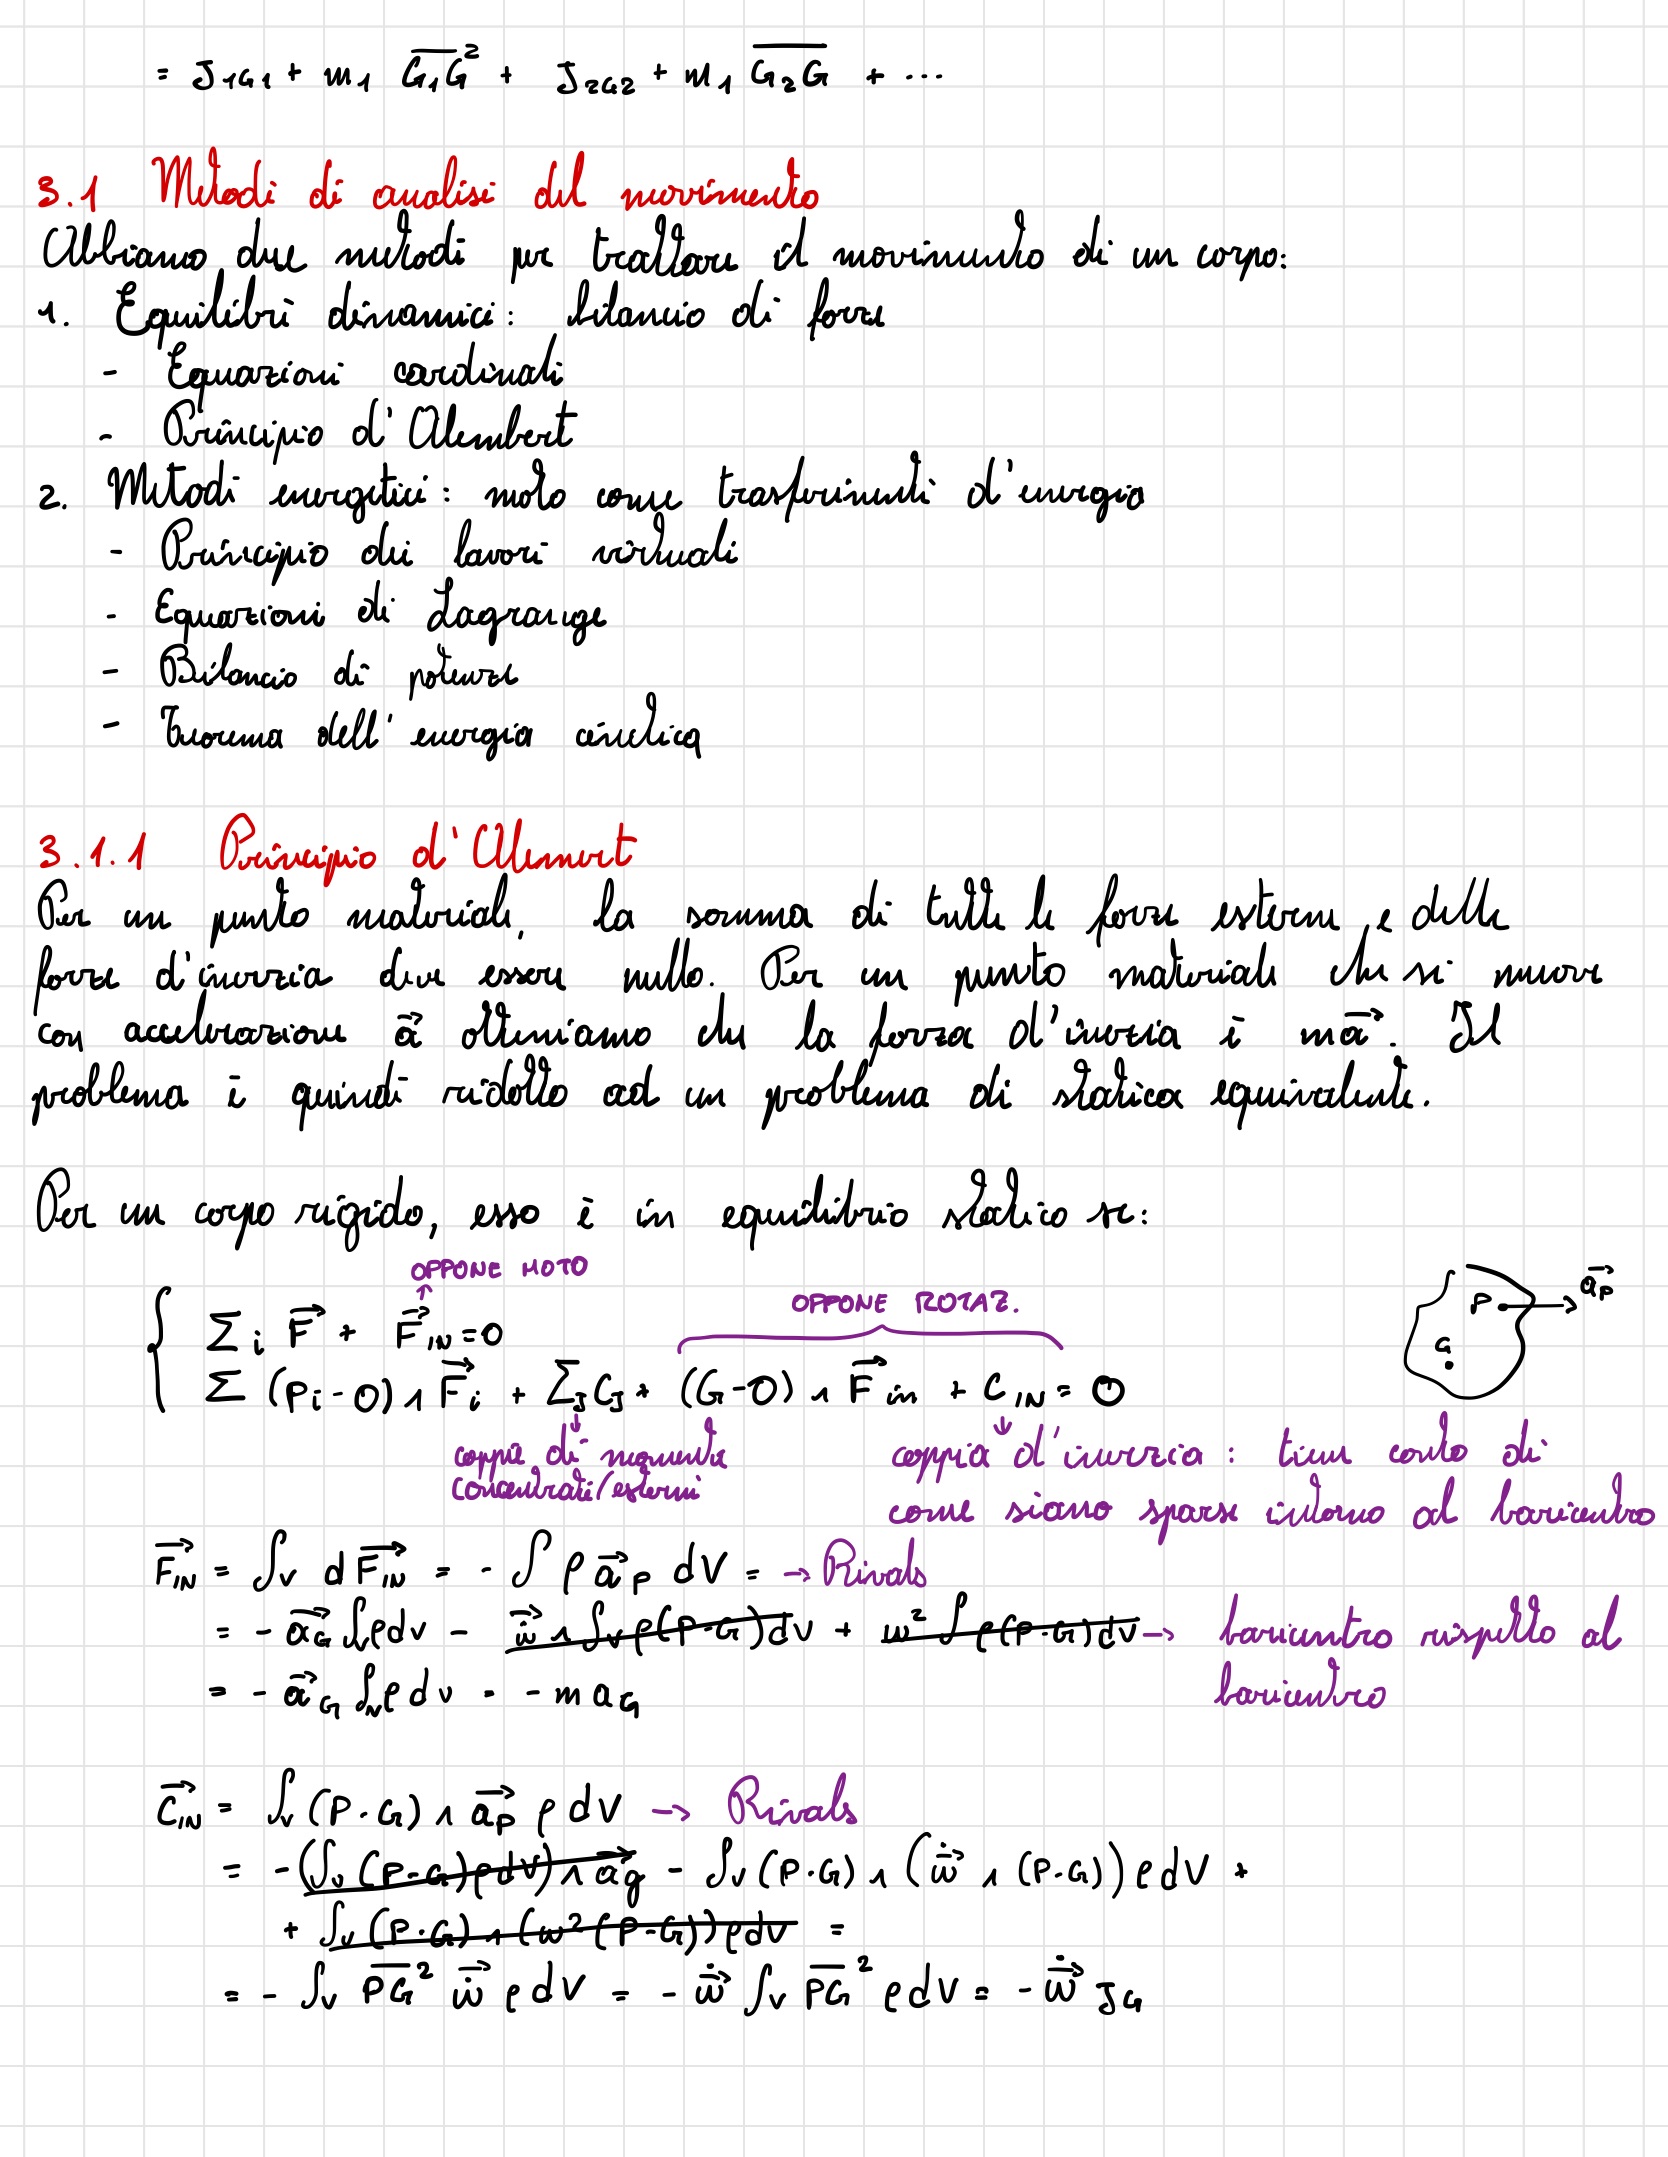 = J1G1 + m1 G1G² + J2G2 + m1 G2G + ...
3.1 Metodi di analisi del movimento
Abbiamo due metodi per trattare il movimento di un corpo:
1. Equilibri dinamici: bilancio di forze
- Equazioni cardinali
- Principio d'Alembert
2. Metodi energetici: moto come trasferimenti d'energia
- Principio dei lavori virtuali
- Equazioni di Lagrange
- Bilancio di potenze
- Teorema dell'energia cinetica
3.1.1 Principio d'Alemert
Per un punto materiale, la somma di tutte le forze esterne, e delle
forze d'inerzia deve essere nullo. Per un punto materiale che si muove
con accelerazione a⃗ otteniamo che la forza d'inerzia è ma⃗. Il
problema è quindi ridotto ad un problema di statica equivalente.
Per un corpo rigido, esso è in equilibrio statico se:
OPPONE MOTO
OPPONE ROTAZ.
{ Σi F⃗ + F⃗IN = 0
Σ (Pi - O) ∧ F⃗i + ΣJ CJ + (G - O) ∧ F⃗in + CIN = 0
P a⃗P
G
coppie di momente
concentrati/esterni
coppia d'inerzia: tien conto di
come siano sparse intorno al baricentro
F⃗IN = ∫V dF⃗IN = - ∫ ρ a⃗P dV = → Rivals
= - a⃗G ∫V ρ dV - ω̇⃗ ∧ ∫V ρ(P-G) dV + ω² ∫ ρ(P-G) dV → baricentro rispetto al
baricentro
= - a⃗G ∫V ρ dV = - m aG
C⃗IN = ∫V (P-G) ∧ a⃗P ρ dV → Rivals
= - (∫V (P-G) ρ dV) ∧ a⃗g - ∫V (P-G) ∧ (ω̇⃗ ∧ (P-G)) ρ dV +
+ ∫V (P-G) ∧ (ω² (P-G)) ρ dV =
= - ∫V PG² ω̇⃗ ρ dV = - ω̇⃗ ∫V PG² ρ dV = - ω̇⃗ JG